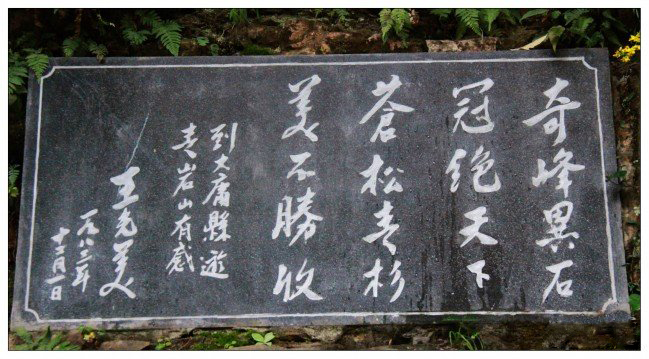 奇峰異石
冠绝天下
蒼松青杉
美不勝收
到大庸縣遊
青岩山有感
王光美
一九八三年
十二月一日